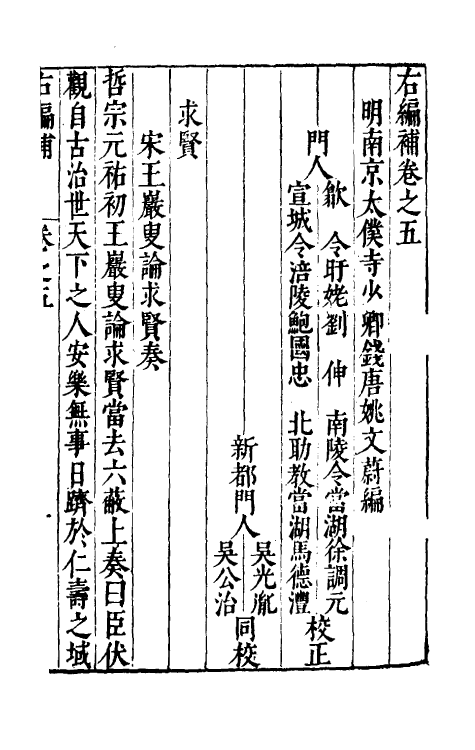 右編補卷之五
明南京太僕寺少卿錢唐姚文蔚編
門人
歙　令旴姥劉　伸　南陵令當湖徐調元
宣城令涪陵鮑國忠　北助教當湖馬德澧
校正
新都門人
吳光胤
吳公治
同校
求賢
宋王巖叟論求賢奏
哲宗元祐初王巖叟論求賢當去六蔽上奏曰臣伏
觀自古治世天下之人安樂無事日躋於仁壽之域
右編補　卷之五